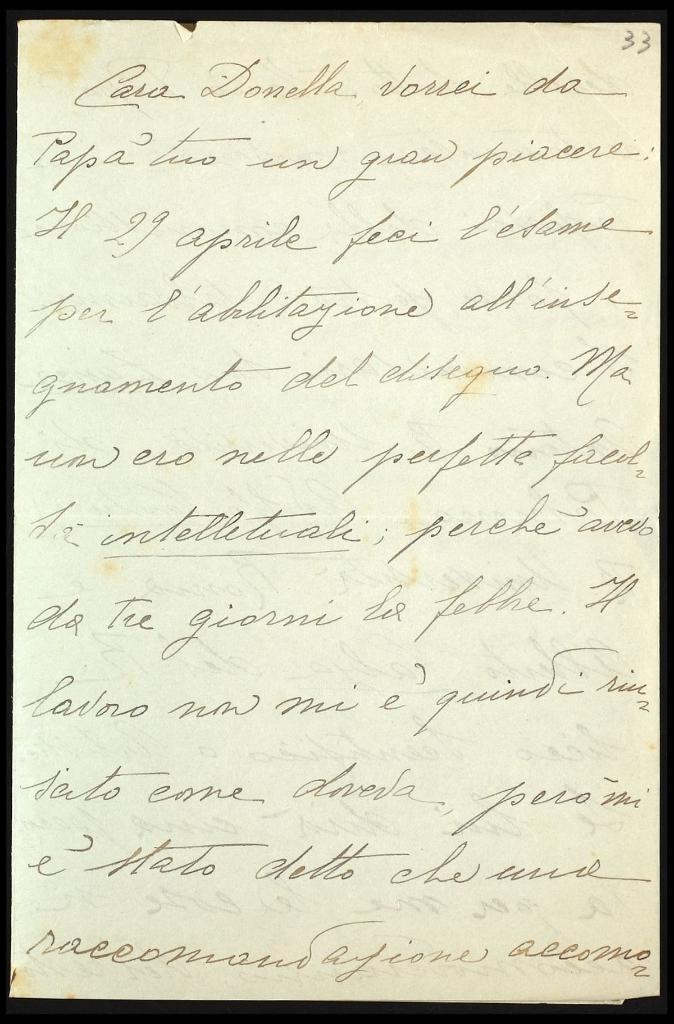 33
Cara Donella, vorrei da
Papà tuo un gran piacere:
Il 29 aprile feci l'esame
per l'abilitazione all'inse=
gnamento del disegno. Ma
non ero nelle perfette facol=
tà intelletuali; perchè avevo
da tre giorni la febbre. Il
lavoro non mi è quindi riu=
scito come doveva, però mi
è stato detto che una
raccomandazione accomo=